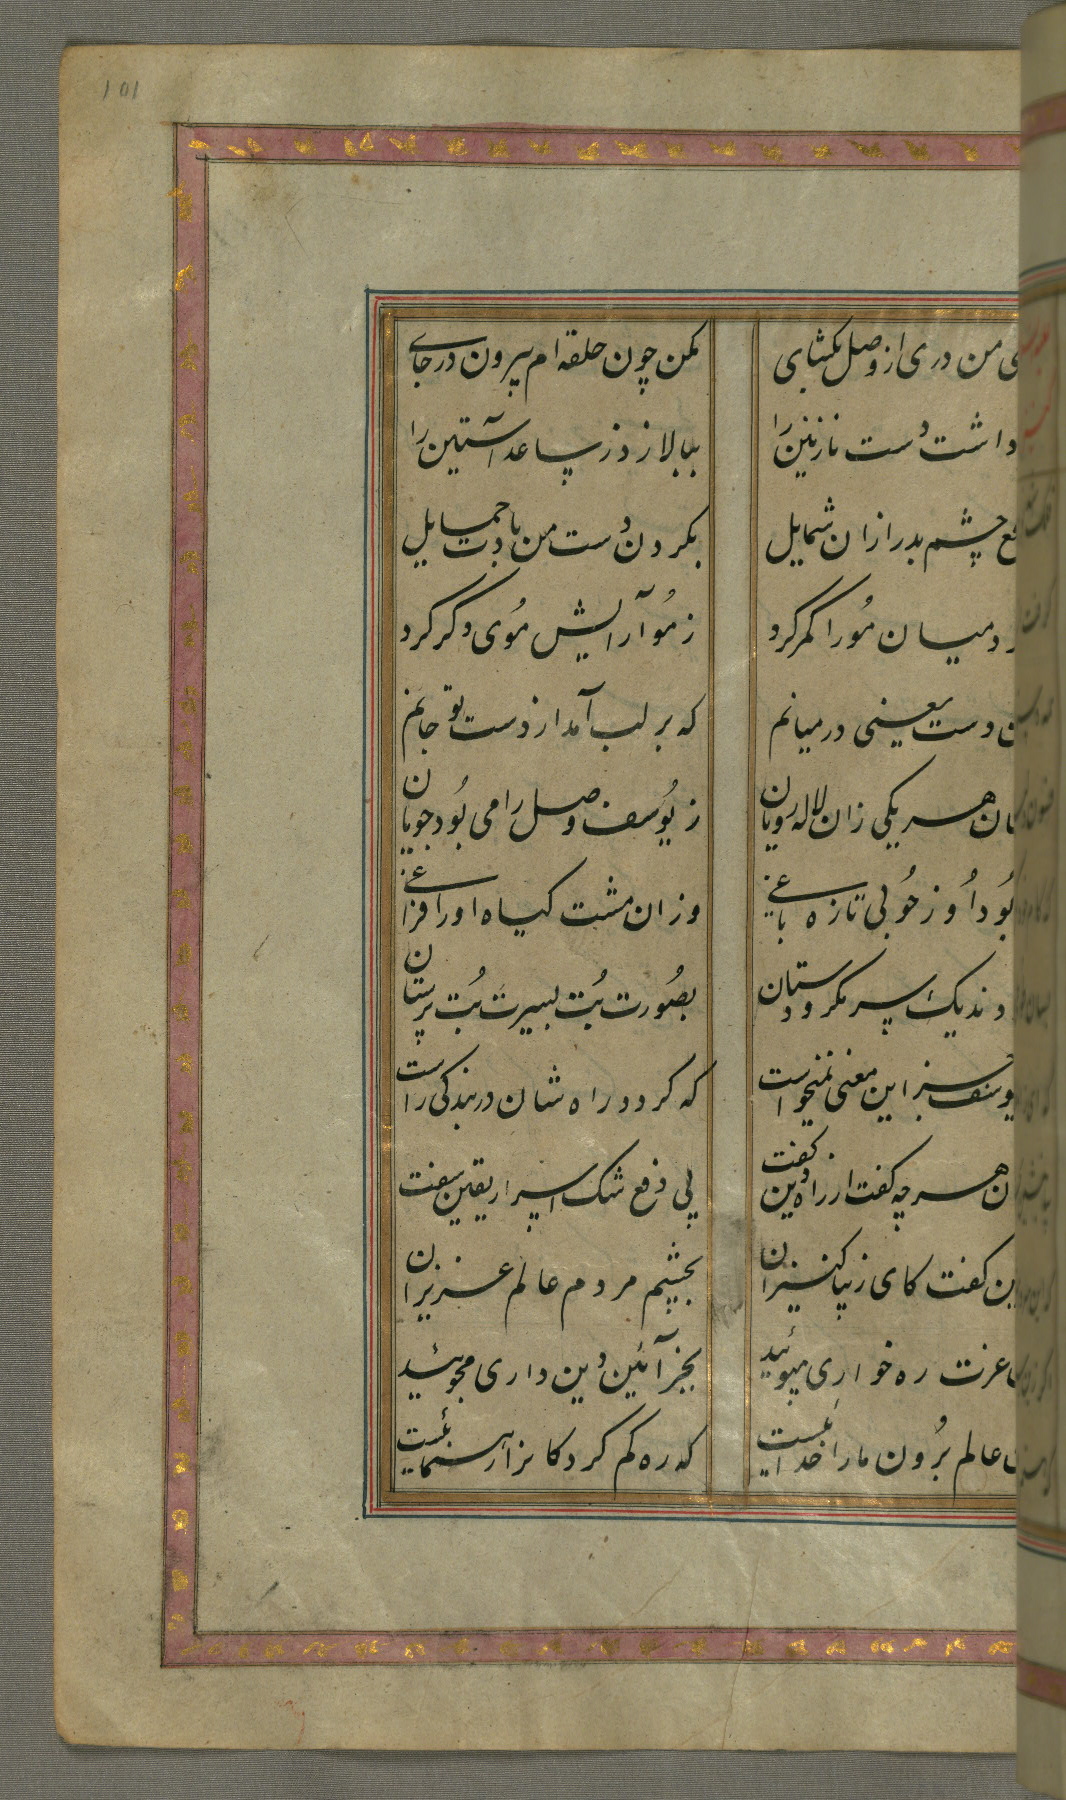 101
ی من دری از وصل بکشای
مکن چون حلقه ام بیرون در جای
داشت دست نازنین را
ببالا زد ز ساعد آستین را
چشم بد را زان شمایل
بگردن دست من بادت حمایل
د میان مو را کمر کرد
ز مو آرایش موی دگر کرد
دست یعنی در میانم
که بر لب آمد از دست تو جانم
ان هر یکی زان لاله رویان
ز یوسف وصل را می بود جویان
بود او ز خوبی تازه باغی
وزان مشت کیاه او را فراغی
وندیک سر مکر و دستان
بصورت بت بسیرت بت پرستان
یوسف جز این معنی نمیخواست
که کردد راه شان در بندگی راست
ن هر چه کفت از راه دین کفت
پی رفع شک اسرار یقین سفت
ین کفت کای زیبا کنیزان
بچشم مردم عالم عزیزان
عزت ره خواری مپوئید
بجز آئین دین داری مجوئید
عالم برون ما را خدائیست
که ره کم کردکانرا رهنمائیست